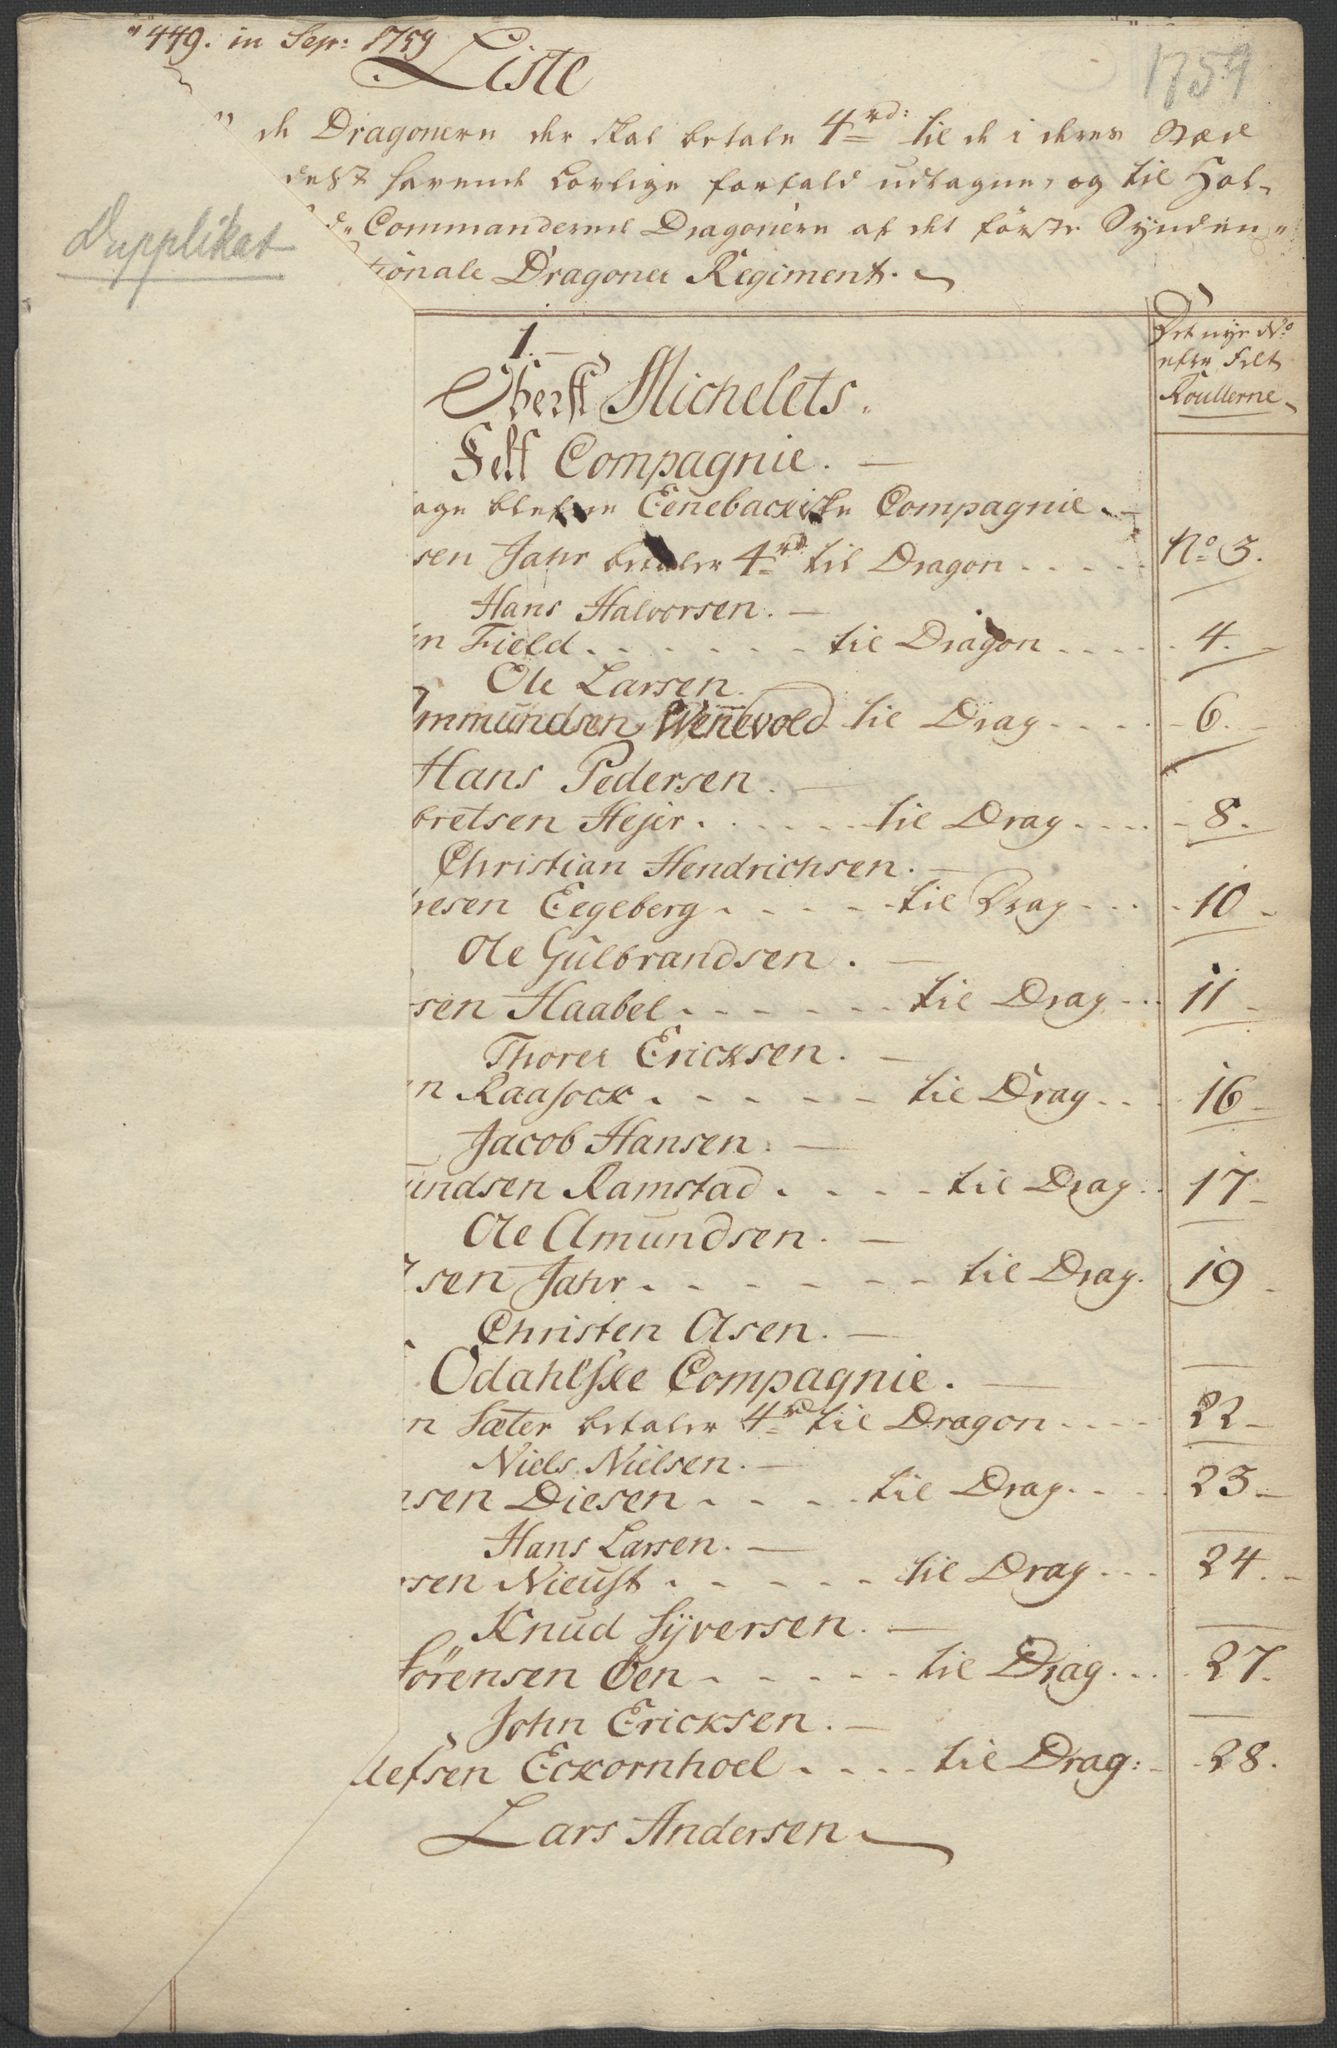 449. in Sep: 1759
1759
Liste
de Dragonern der skal betale 4 rd: til de i deres Stæd
havende Lovlige forfald udtagne, og til Hol-
Commanderede Dragonern af det första Synden
tionale Dragoner Regiment.
Dupplikat
1.
Det nye No
efter Felt
Roullerne
Oberst Michelets.
Self Compagnie.
age blefne Eenebackiske Compagnie
sen Jahr betaler 4 rd til Dragon No 3.
Hans Halvorsen.
n Field til Dragon 4.
Ole Larsen.
Ammundsen Wenevold til Drag 6.
Hans Pedersen.
bretsen Hejer. til Drag 8.
Christian Hendrichsen.
resen Eegeberg til Drag 10
Ole Gulbrandsen.
sen Haabel til Drag 11
Thorer Ericksen.
n Raasock. til Drag 16
Jacob Hansen.
undsen Ramstad. til Drag. 17
Ole Amundsen.
sen Jahr. til Drag. 19
Christen Olsen.
Odahlske Compagnie.
n Sæter betaler 4 rd til Dragon 22
Niels Nielsen.
nsen Diesen til Drag. 23
Hans Larsen.
rsen Nieust. til Drag 24.
Knud Syversen.
Sørensen Øen til Drag 27
John Ericksen.
lefsen Eckornhoel. til Drag: 28.
Lars Andersen